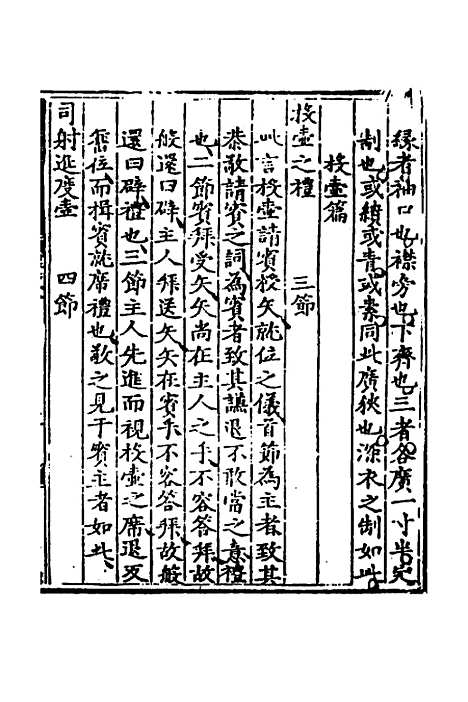 緣者袖口也襟旁也下齊也三者各廣一寸半定
制也或繢或青或素同此廣狹也深衣之制如此
投壺篇
投壺之禮　三節
此言投壺請賓授矢就位之儀首節為主者致其
恭敬請賓之詞為賓者致其謙退不敢當之意禮
也二節賓拜受矢矢尚在主人之手不容答拜故
般還曰辟主人拜送矢矢在賓手不容答拜故般
還曰辟禮也三節主人先進而視投壺之席退反
舊位而揖賓就席禮也敬之見于賓主者如此
司射進度壺　四節